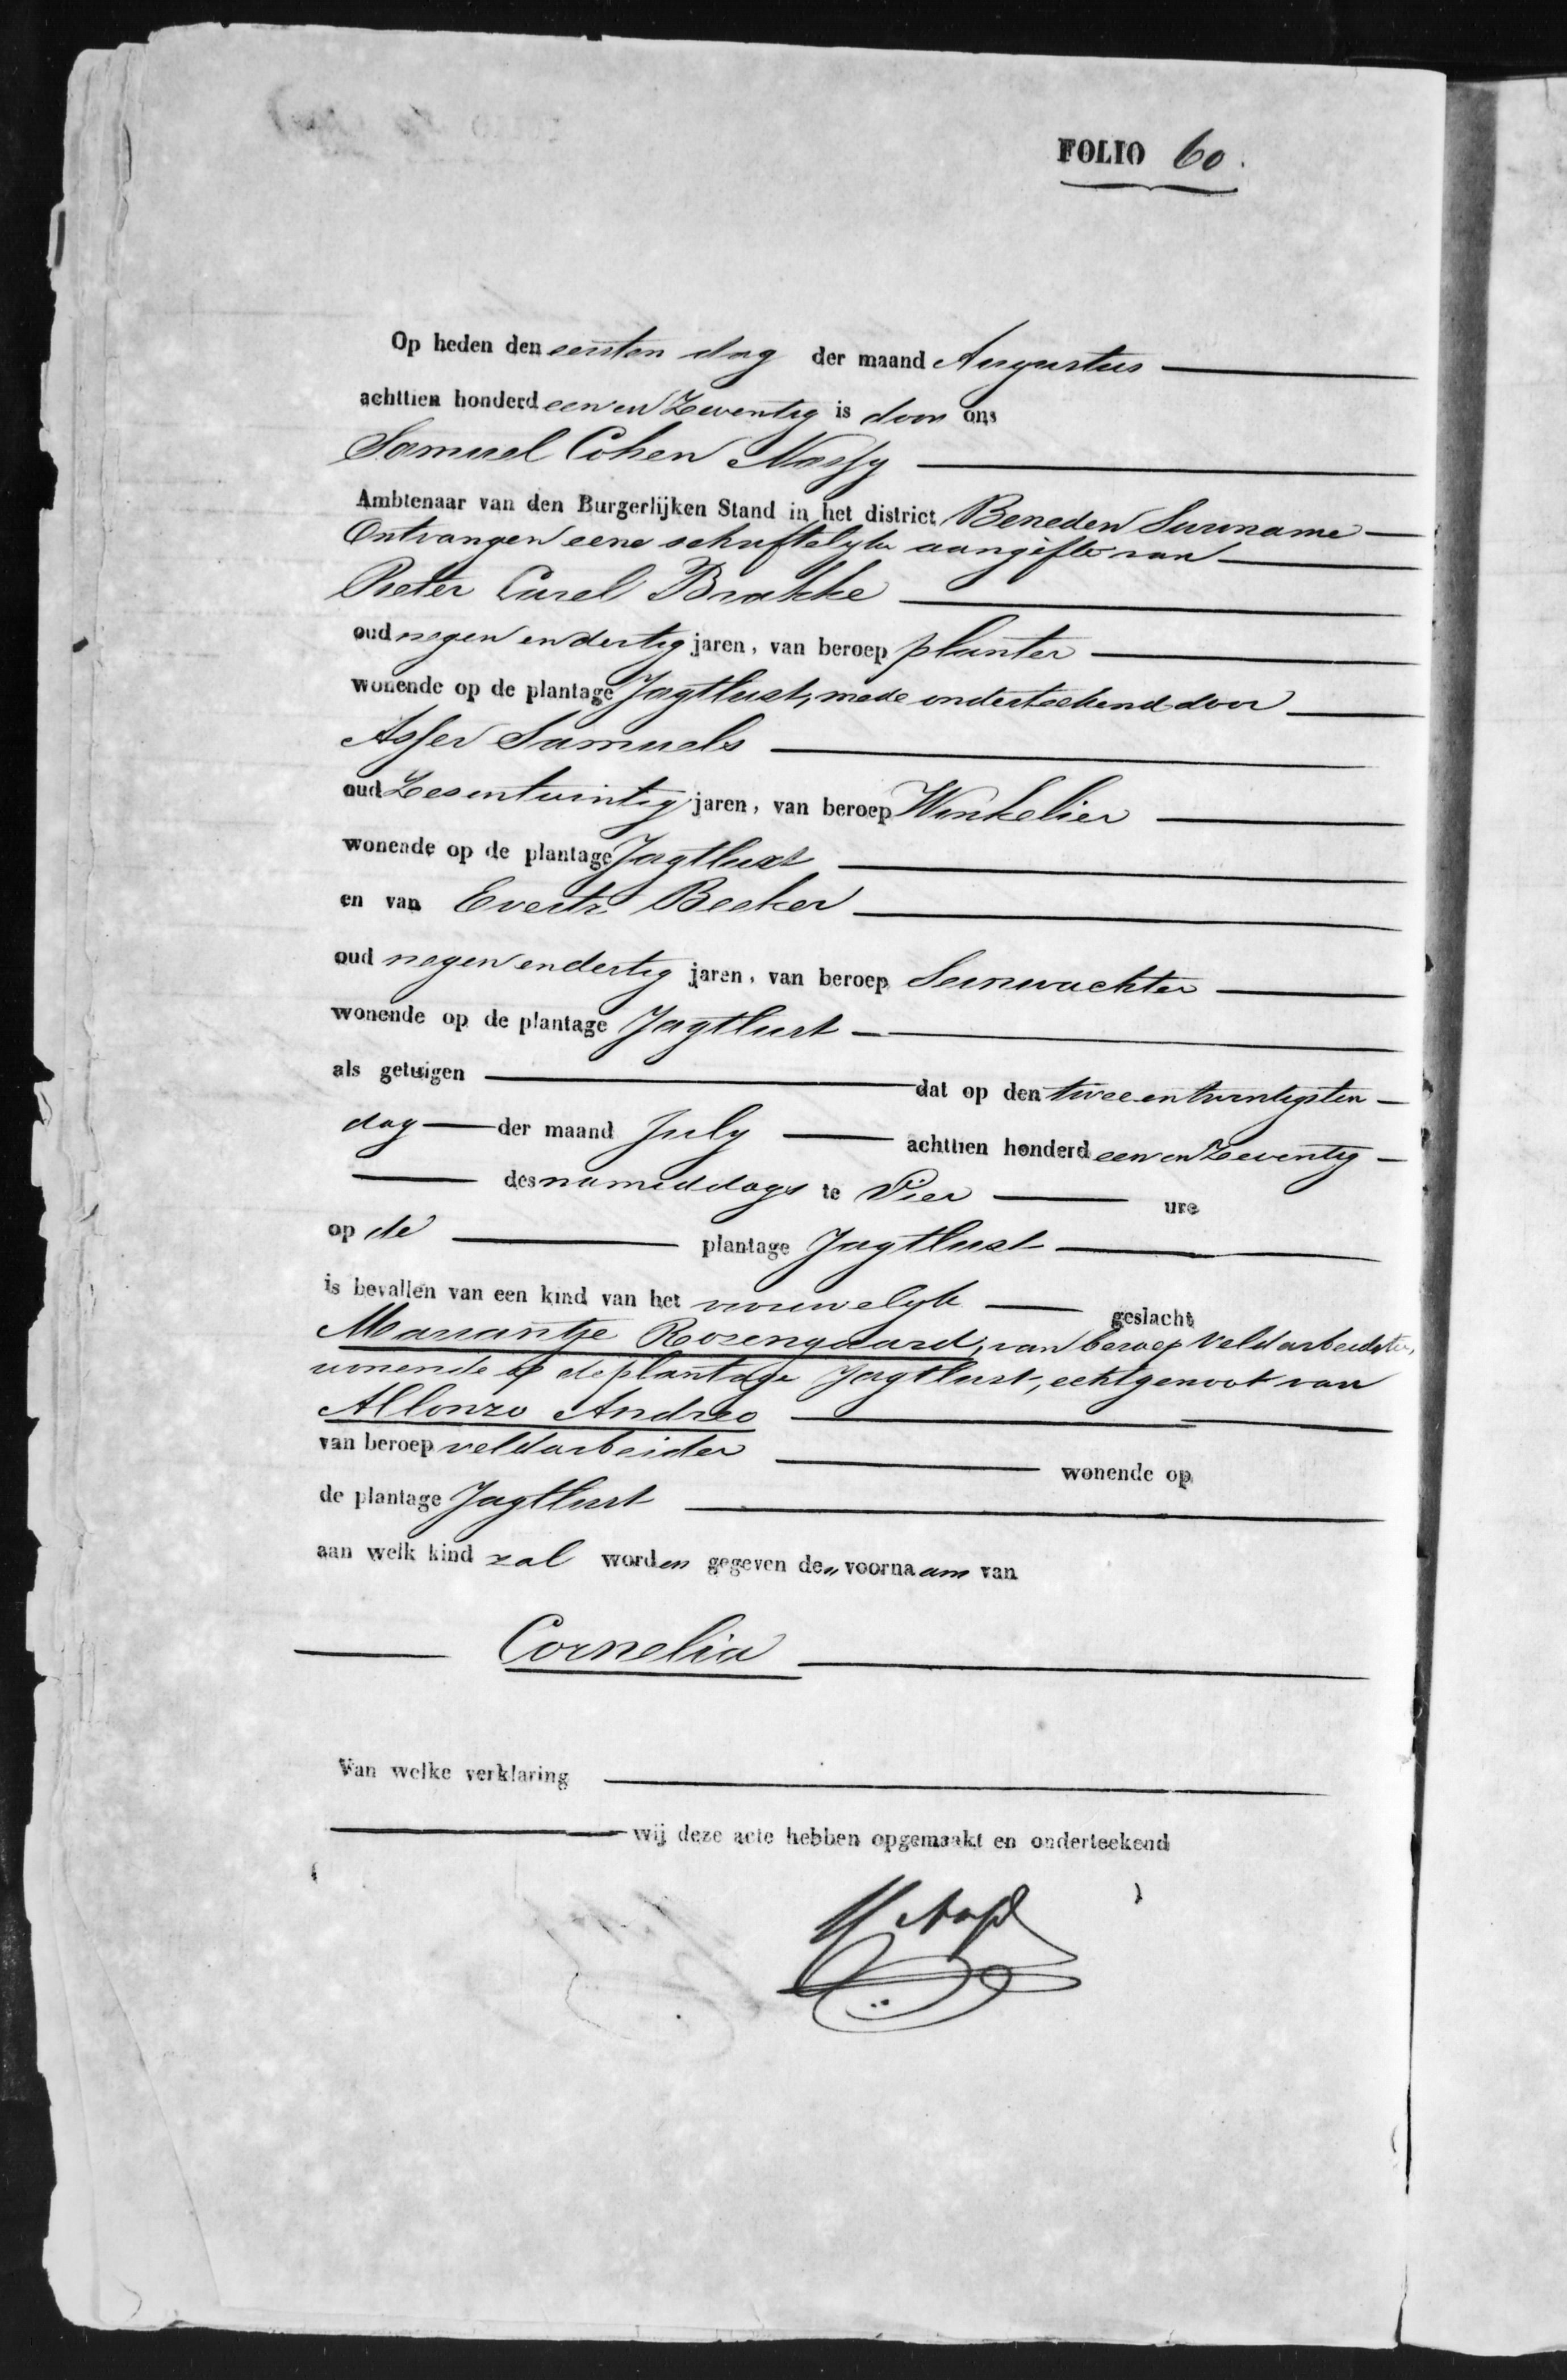 FOLIO 60.
Op heden den eersten dag der maand Augustus
achttien honderd een en Zeventig is door ons
Samuel Cohen Nassy
Ambtenaar van den Burgerlijken Stand in het district Beneden Suriname
Ontvangen eene schriftelyke aangifte van
Pieter Carel Brakke
oud negen en dertig jaren, van beroep planter
wonende op de plantage Jagtlust, mede onderteekend door
Asser Samuels
oud Zesentwintig jaren, van beroep Winkelier
wonende op de plantage Jagtlust
en van Evertz Becker
oud negen en dertig jaren, van beroep Seinwachter
wonende op de plantage Jagtlust
als getuigen dat op den twee en twintigsten
dag der maand July achttien honderd een en Zeeventig
des namiddags te Vier ure
op de plantage Jagtlust
is bevallen van een kind van het vrouwelyk geslacht
Mariantje Rozengaard, van beroep veldarbeidster,
wonende op de plantage Jagtlust, echtgenoot van
Allonzo Andreo
van beroep veldarbeider wonende op
de plantage Jagtlust
aan welk kind zal worden gegeven den voornaam van
Cornelia
Van welke verklaring
wij deze acte hebben opgemaakt en onderteekend